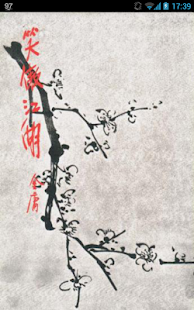 97
17:39
笑傲江湖
金庸